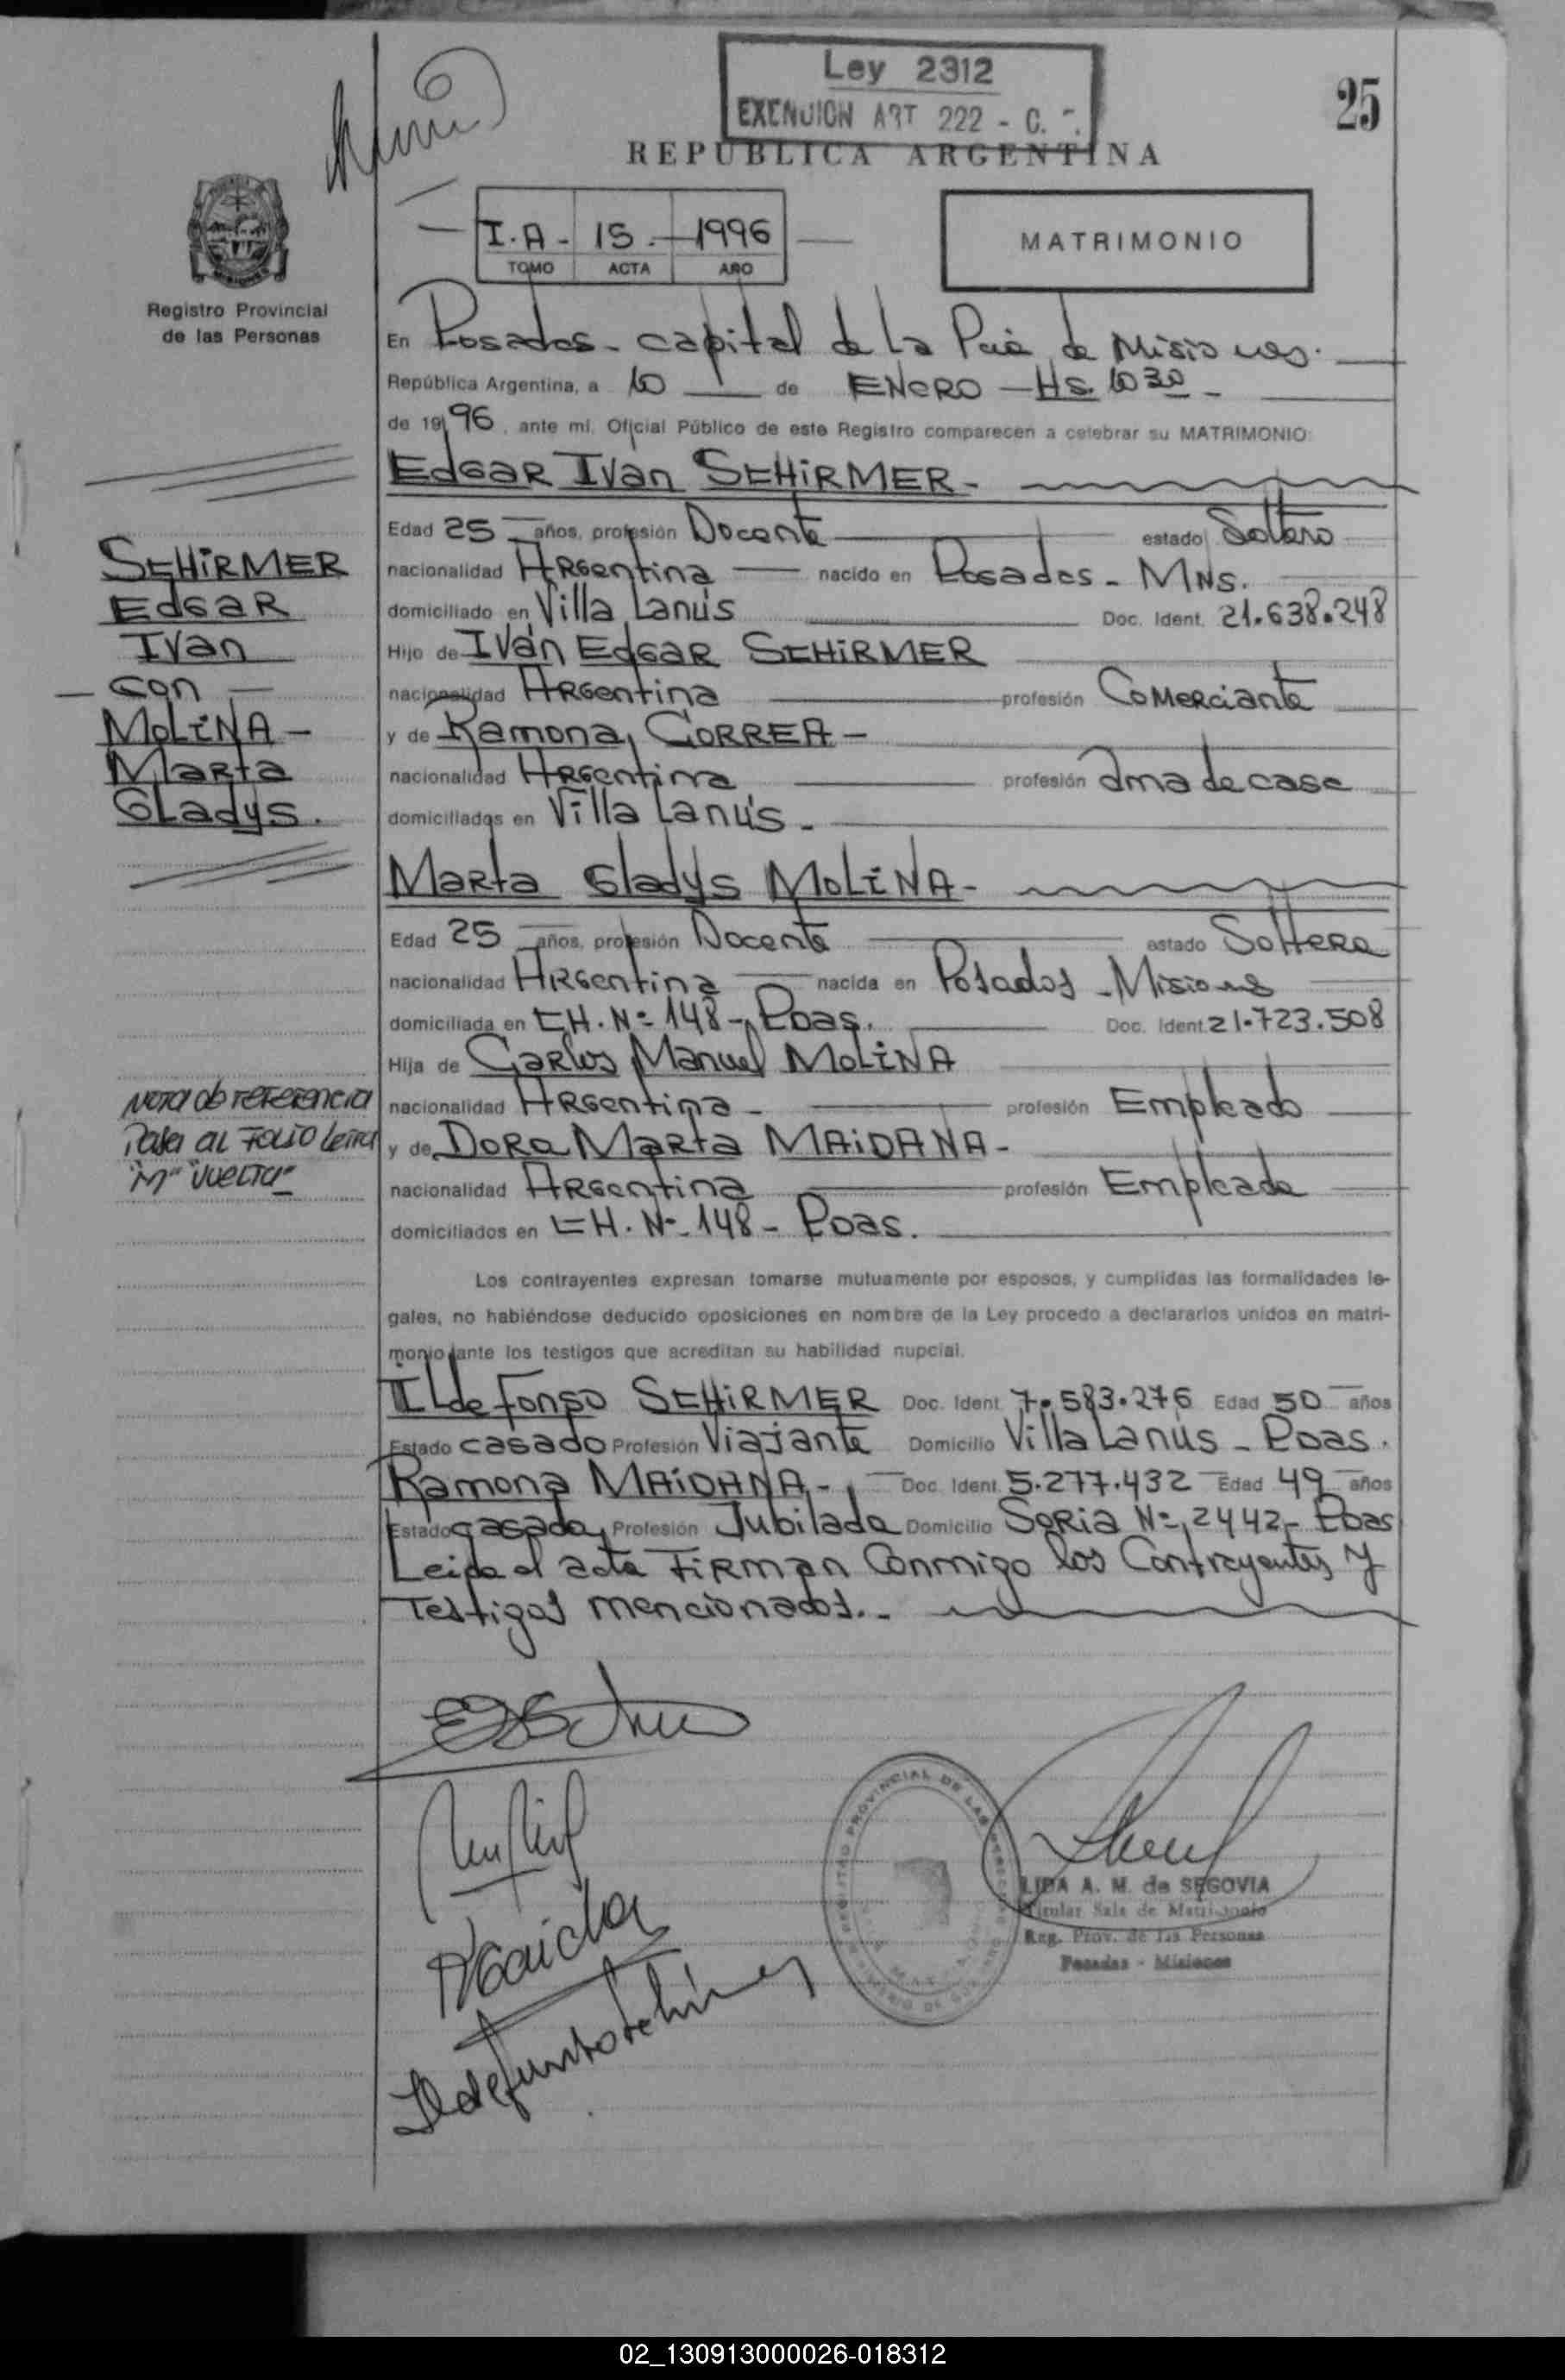 Ley 2312
EXENCION ART 222 - C.
25
REPUBLICA ARGENTINA
I.A - 15. - 1996
TOMO ACTA AÑO
MATRIMONIO
Registro Provincial
de las Personas
En Posadas - capital de La Pcia de Misiones.
República Argentina, a 10 de ENERO - HS. 10 30 -
de 19 96, ante mí, Oficial Público de este Registro comparecen a celebrar su MATRIMONIO:
EdGAR Iván SCHiRMER -
Edad 25 años, profesión Docente estado Soltero
nacionalidad ARGentina nacido en Posadas - MNS.
domiciliado en Villa Lanús Doc. Ident. 21.638.248
Hijo de Iván EdGAR SCHiRMER
nacionalidad ARGentina profesión Comerciante
y de Ramona CORREA -
nacionalidad ARGentina profesión Ama de casa
domiciliados en Villa Lanús -
SCHiRMER
EdGAR
Ivan
- con -
MOLiNA -
Marta
GLadys.
Marta Gladys MOLiNA -
Edad 25 años, profesión Docente estado Soltera
nacionalidad ARGentina nacida en Posadas - Misiones
domiciliada en CH. Nº 148 - Pdas. Doc. Ident. 21.723.508
Hija de Carlos Manuel MOLiNA
nacionalidad ARGentina - profesión Empleado
y de Dora Marta MAiDANA -
nacionalidad ARGentina profesión Empleada
domiciliados en CH. Nº 148 - Pdas.
Nota de referencia
Pasa al Folio Letra
"M" Vuelta
Los contrayentes expresan tomarse mutuamente por esposos, y cumplidas las formalidades le-
gales, no habiéndose deducido oposiciones en nombre de la Ley procedo a declararlos unidos en matri-
monio ante los testigos que acreditan su habilidad nupcial.
ILdefonso SCHiRMER Doc. Ident. 7.583.276 Edad 50 años
Estado casado Profesión Viajante Domicilio Villa Lanús - Pdas.
Ramona MAiDANA - Doc. Ident. 5.277.432 Edad 49 años
Estado casada Profesión Jubilada Domicilio Soria Nº 2442 - Pdas
Leida el acta FiRman Conmigo los Contrayentes y
Testigos mencionados. -
LIDA A. M. de SEGOVIA
Titular Sala de Matrimonio
Reg. Prov. de las Personas
Posadas - Misiones
02_130913000026-018312